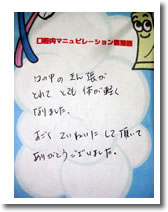 口腔内マニュピレーション体験談
口の中のきん張が
とれて とても 体が軽く
なりました。
すごく ていねいに して頂いて
ありがとうございました。